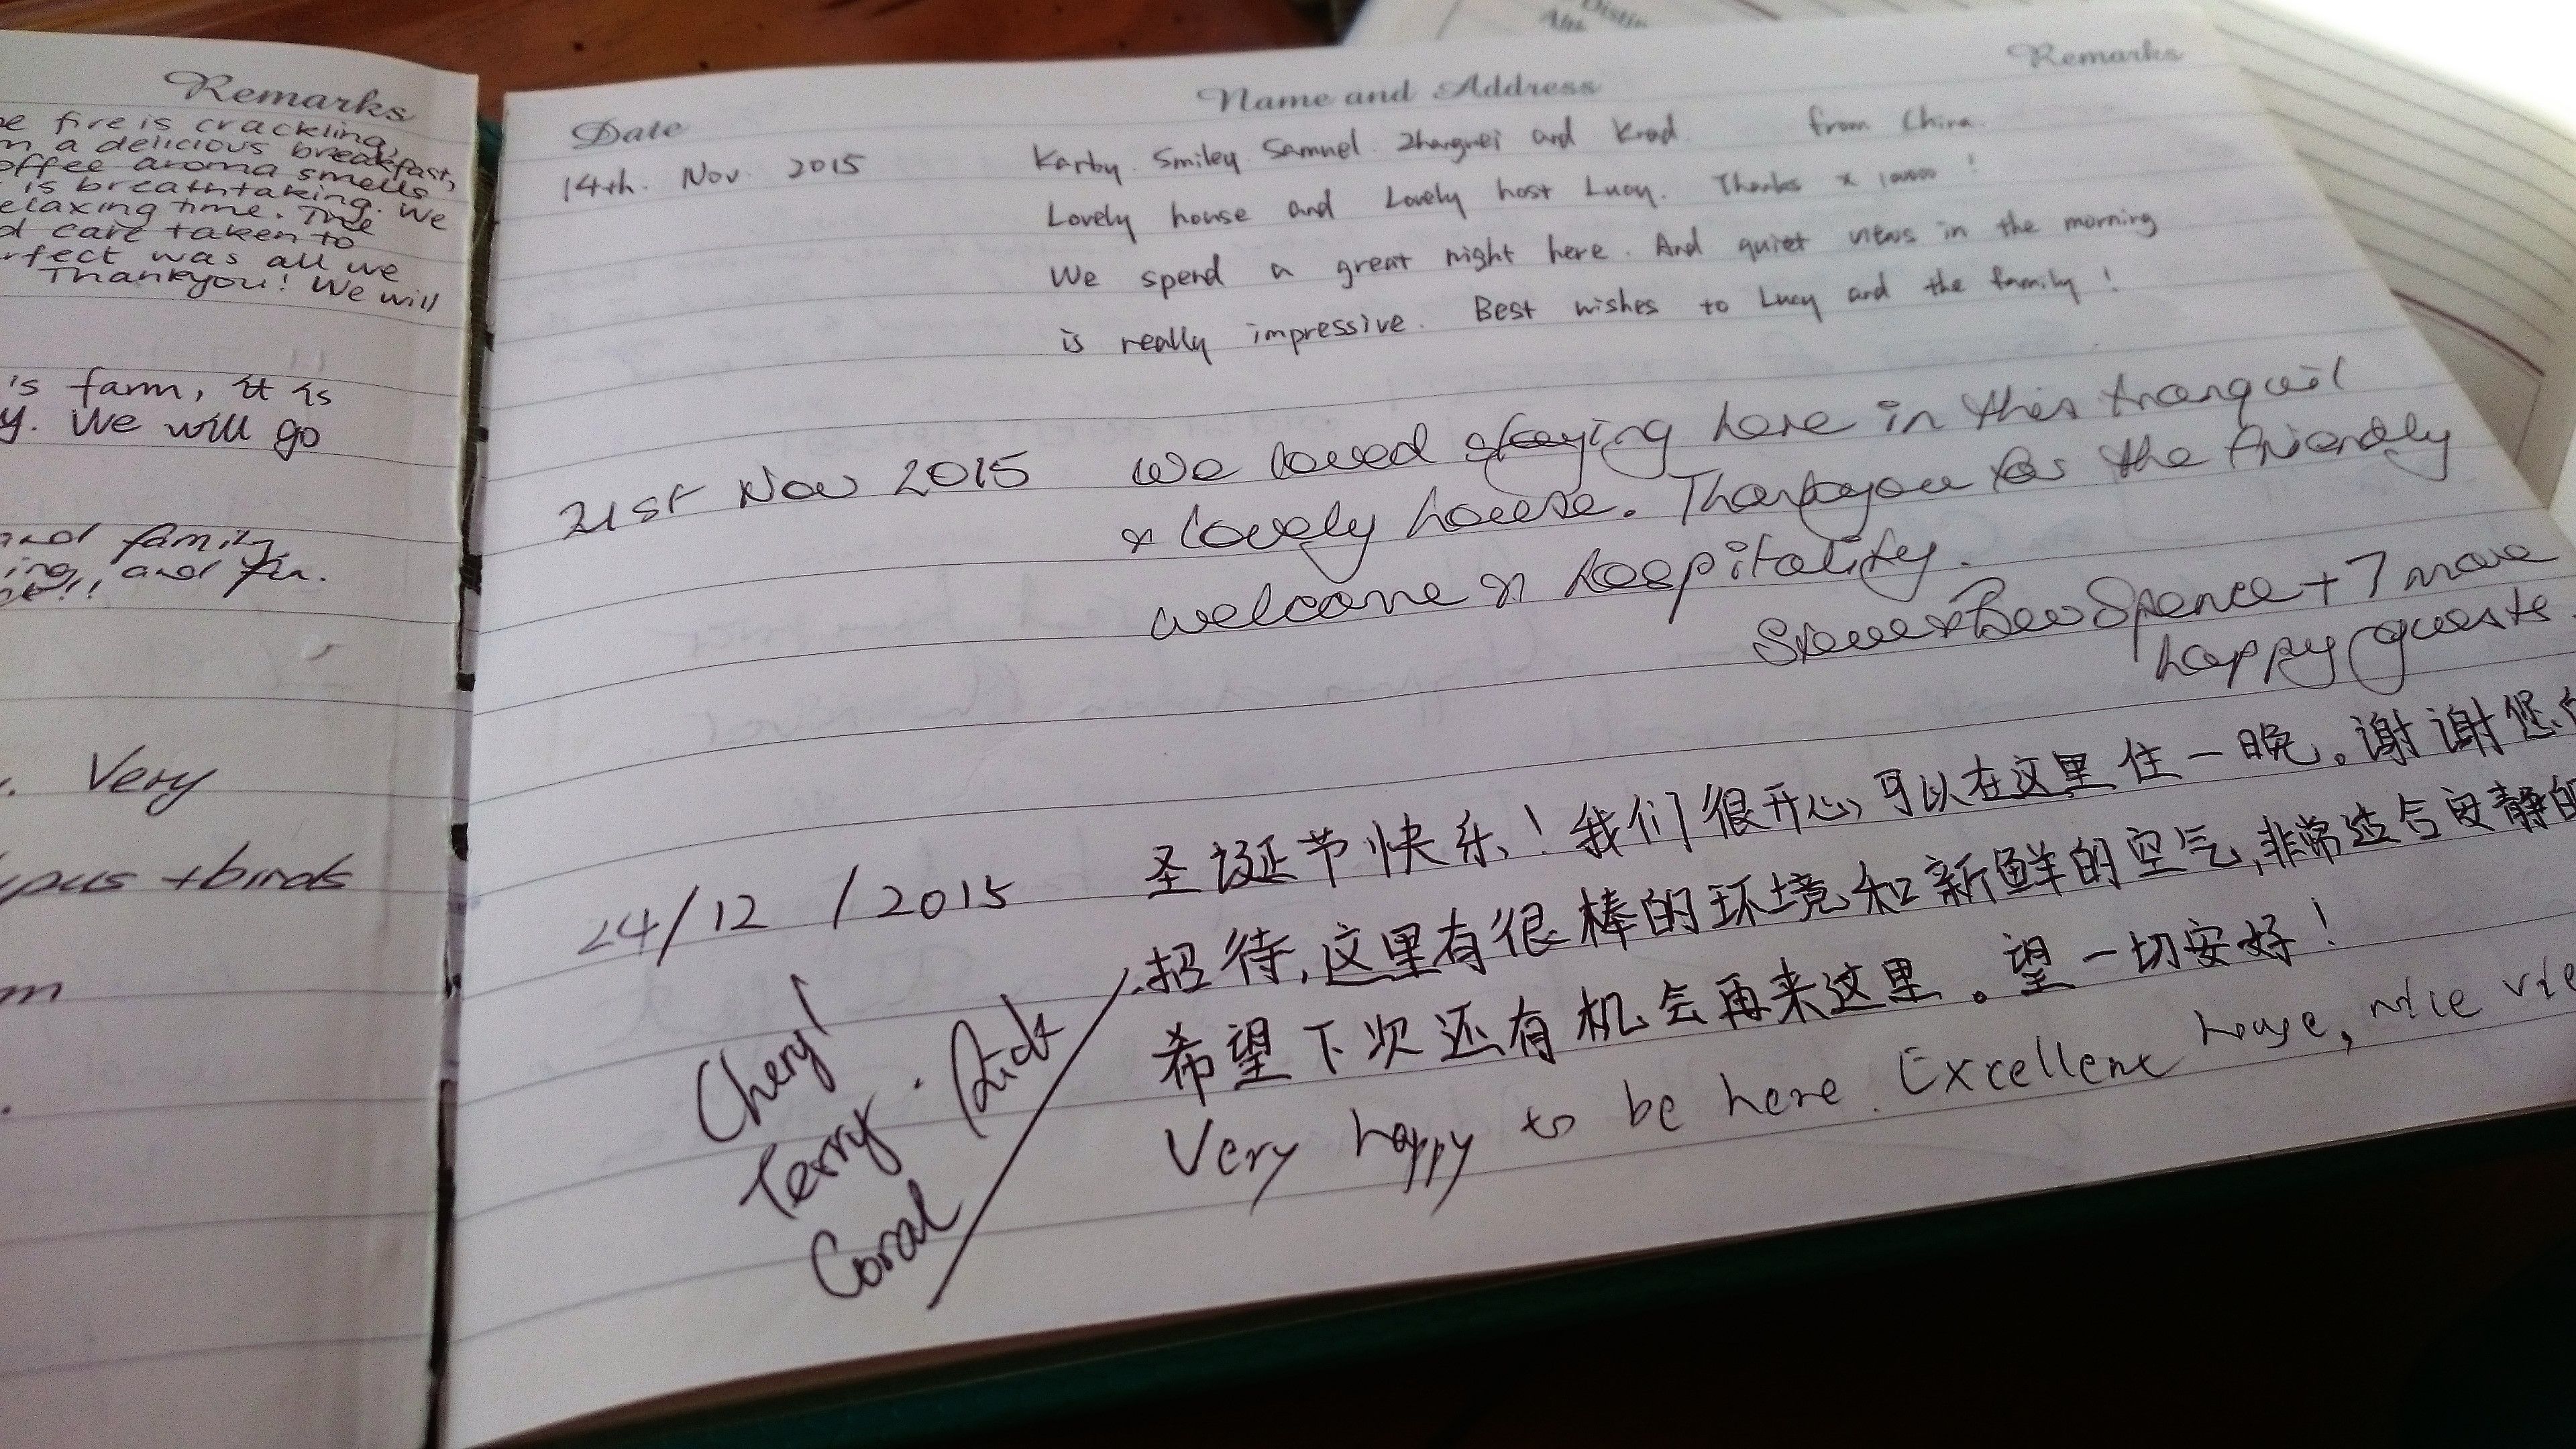 Remarks
fire is crackling,
a delicious breakfast,
aroma smells
is breathtaking. We
time. The
care taken to
was all we
Thankyou! We will
's farm, it is
We will go
and family
and fun.
Very
+ birds
Date
Name and Address
Remarks
14th. Nov. 2015
Karby. Smiley. Samuel. Zhangwei and Krad. from China.
Lovely house and Lovely host Lucy. Thanks x 10000 !
We spend a great night here. And quiet views in the morning
is really impressive. Best wishes to Lucy and the family !
21st Nov 2015
We loved staying here in this tranquil
& lovely house. Thankyou for the friendly
welcome & hospitality.
Steve & Bev Spence + 7 more
happy guests.
24/12/2015
圣诞节快乐！我们很开心，可以在这里住一晚。谢谢您的
招待，这里有很棒的环境和新鲜的空气，非常适合安静的
希望下次还有机会再来这里。望一切安好！
Very happy to be here. Excellent house, nice
Cheryl
Terry. Rick
Coral